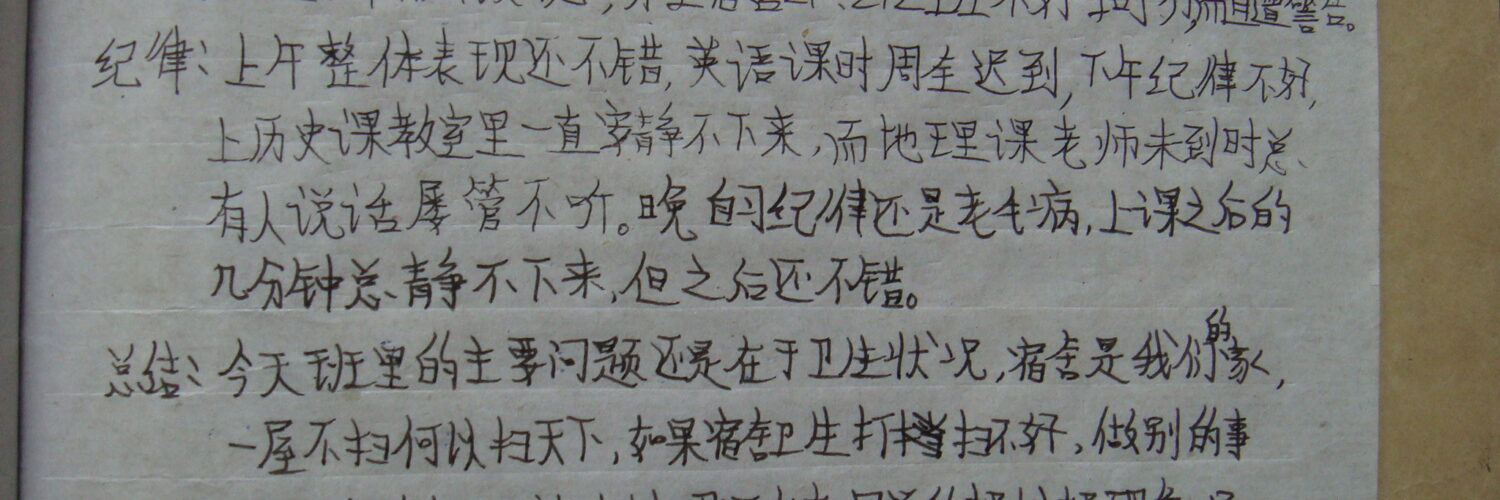 而且遭警告。
纪律:上午整体表现还不错,英语课时周全迟到,下午纪律不好,
上历史课教室里一直安静不下来,而地理课老师未到时总
有人说话屡管不听。晚自习纪律还是老毛病,上课之后的
几分钟总静不下来,但之后还不错。
总结:今天班里的主要问题还是在于卫生状况,宿舍是我们的家,
一屋不扫何以扫天下,如果宿舍卫生打扫不好,做别的事